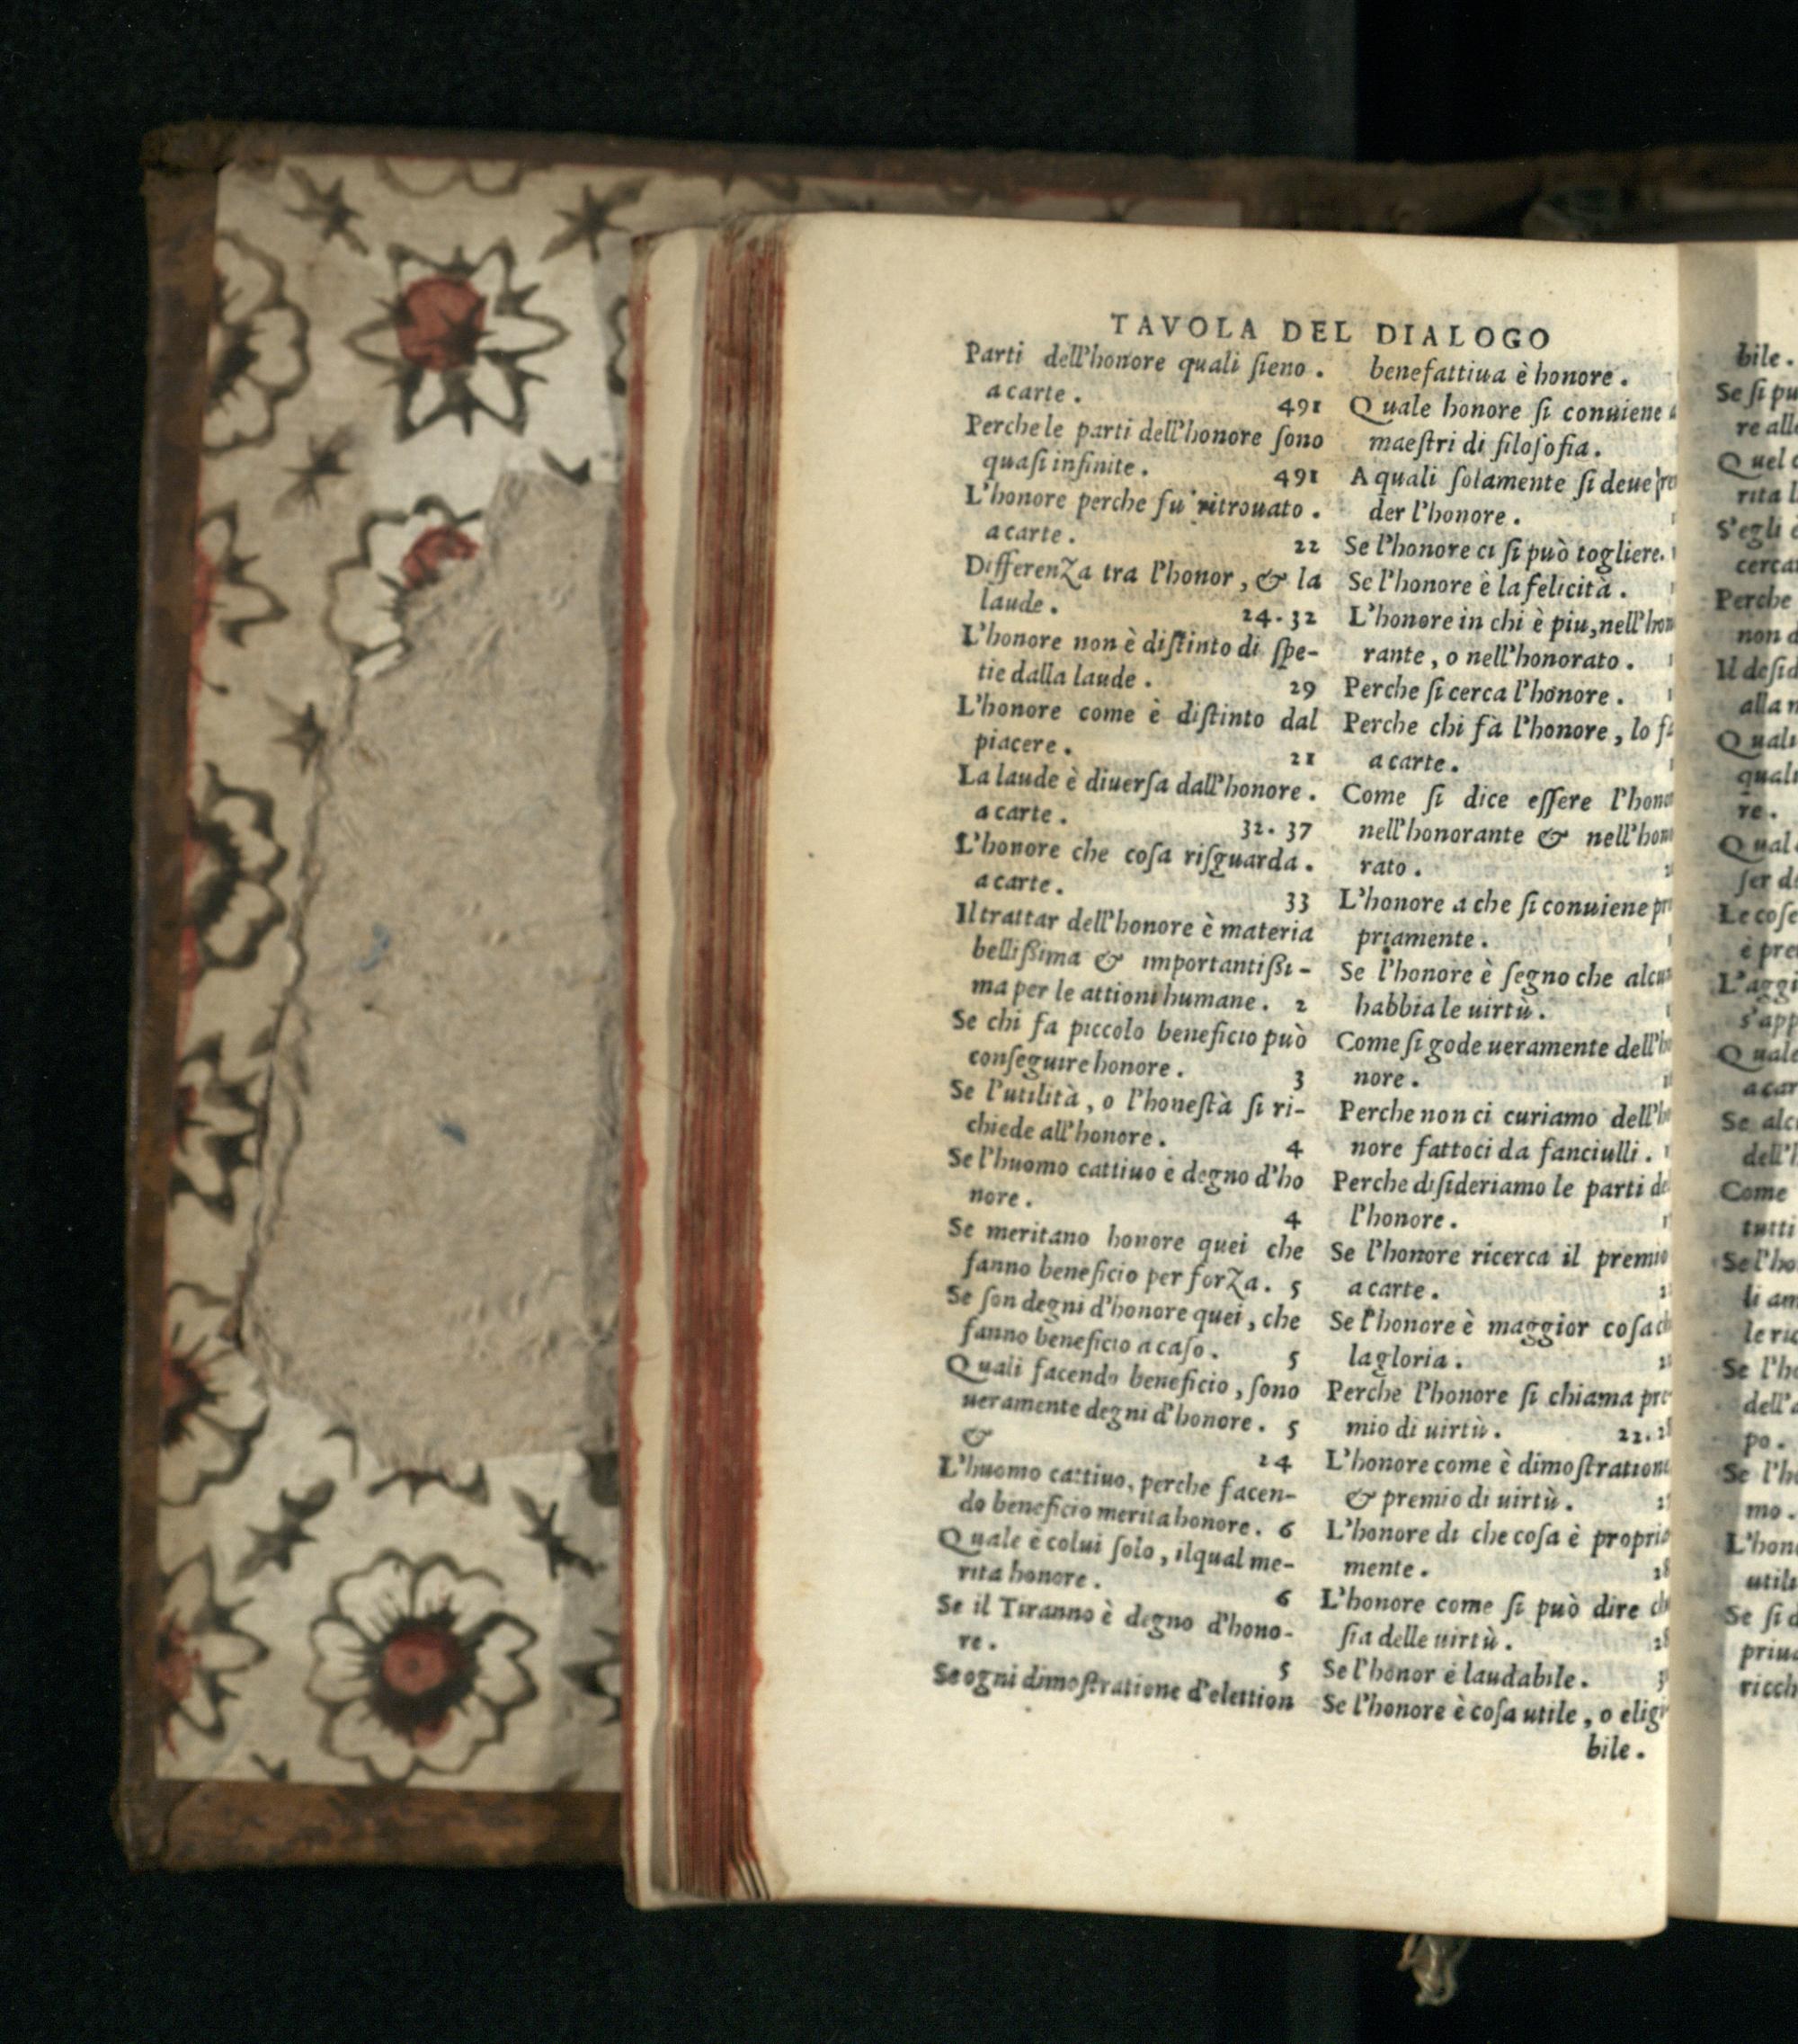 TAVOLA DEL DIALOGO
Parti dell'honore quali ſieno.
a carte. 491
Perche le parti dell'honore ſono
quaſi infinite. 491
L'honore perche fu ritrouato.
a carte. 22
Differenza tra l'honor, & la
laude. 24.32
L'honore non è diſtinto di ſpe-
tie dalla laude. 29
L'honore come è diſtinto dal
piacere. 21
La laude è diuerſa dall'honore.
a carte. 32.37
L'honore che coſa riſguarda.
a carte. 33
Il trattar dell'honore è materia
belliſſima & importantiſſi-
ma per le attioni humane. 2
Se chi fa piccolo beneficio può
conſeguire honore. 3
Se l'utilità, o l'honeſtà ſi ri-
chiede all'honore. 4
Se l'huomo cattiuo è degno d'ho
nore. 4
Se meritano honore quei che
fanno beneficio per forza. 5
Se ſon degni d'honore quei, che
fanno beneficio a caſo. 5
Quali facendo beneficio, ſono
ueramente degni d'honore. 5
& 24
L'huomo cattiuo, perche facen-
do beneficio merita honore. 6
Quale è colui ſolo, ilqual me-
rita honore. 6
Se il Tiranno è degno d'hono-
re. 5
Se ogni dimoſtratione d'elettion
benefattiua è honore.
Quale honore ſi conuiene
maeſtri di filoſofia.
A quali ſolamente ſi deue
der l'honore.
Se l'honore ci ſi può togliere.
Se l'honore è la felicità.
L'honore in chi è piu, nell'
rante, o nell'honorato.
Perche ſi cerca l'honore.
Perche chi fà l'honore, lo
a carte.
Come ſi dice eſſere l'hono
nell'honorante & nell'hon
rato.
L'honore a che ſi conuiene
priamente.
Se l'honore è ſegno che alcu
habbia le uirtù.
Come ſi gode ueramente dell'
nore.
Perche non ci curiamo dell'
nore fattoci da fanciulli.
Perche diſideriamo le parti
l'honore.
Se l'honore ricerca il premio
a carte.
Se l'honore è maggior coſa
la gloria.
Perche l'honore ſi chiama pre
mio di uirtù. 22.
L'honore come è dimoſtration
& premio di uirtù.
L'honore di che coſa è proprio
mente.
L'honore come ſi può dire
ſia delle uirtù.
Se l'honor è laudabile.
Se l'honore è coſa utile, o eligi
bile.
bile.
Se ſi pu
re all
Quel
rita l
S'egli
cerca
Perche
non d
Il deſid
alla
Quali
quali
re.
Qual
ſer d
Le coſe
è pre
L'aggi
s'app
Quale
a car
Se alc
dell'
Come
tutti
Se l'ho
li am
le ric
Se l'ho
dell'
po.
Se l'h
mo.
L'hon
utili
Se ſi d
priua
ricch